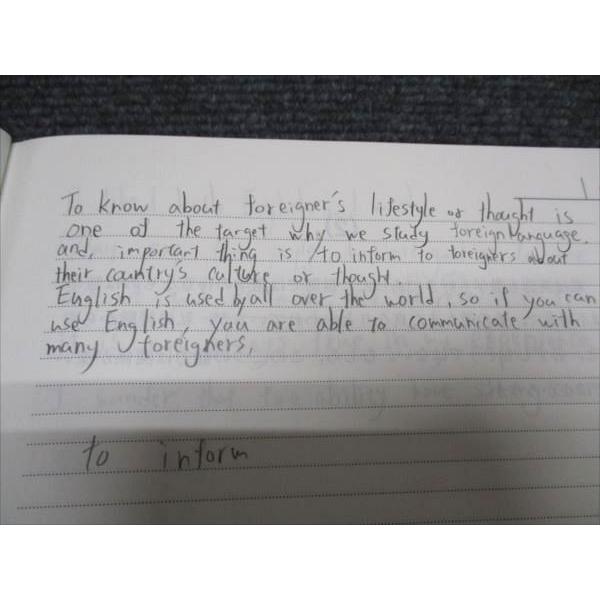 To know about foreigner's lifestyle or thought is
one of the target why we study foreign language.
and, important thing is to inform to foreigners about
their country's culture or thought.
English is used by all over the world, so if you can
use English, you are able to communicate with
many foreigners.
to inform